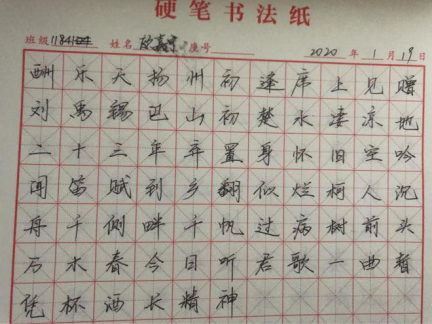 硬笔书法纸
班级 姓名 座号 2020 年 1 月 19 日
酬乐天扬州初逢席上见赠
刘禹锡巴山初楚水凄凉地
二十三年弃置身怀旧空吟
闻笛赋到乡翻似烂柯人沉
舟千侧畔千帆过病树前头
万木春今日听君歌一曲暂
凭杯酒长精神